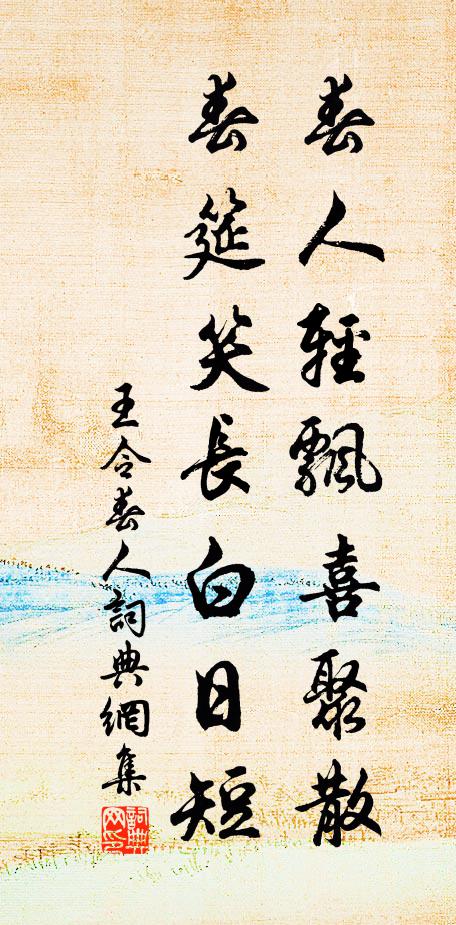 春人輕飄喜聚散
春筵笑長白日短
王令春人詞典網集
詞典網印